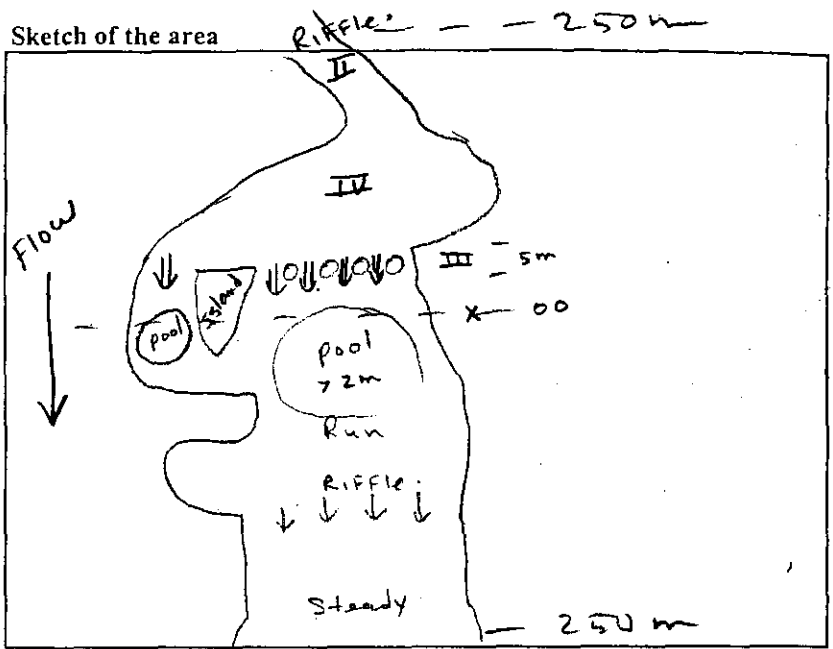 Sketch of the area
Riffle. — — — 250 m
II
IV
Flow
III 5m
Island
x — 00
pool
pool
> 2m
Run
Riffle.
Steady
— 250 m